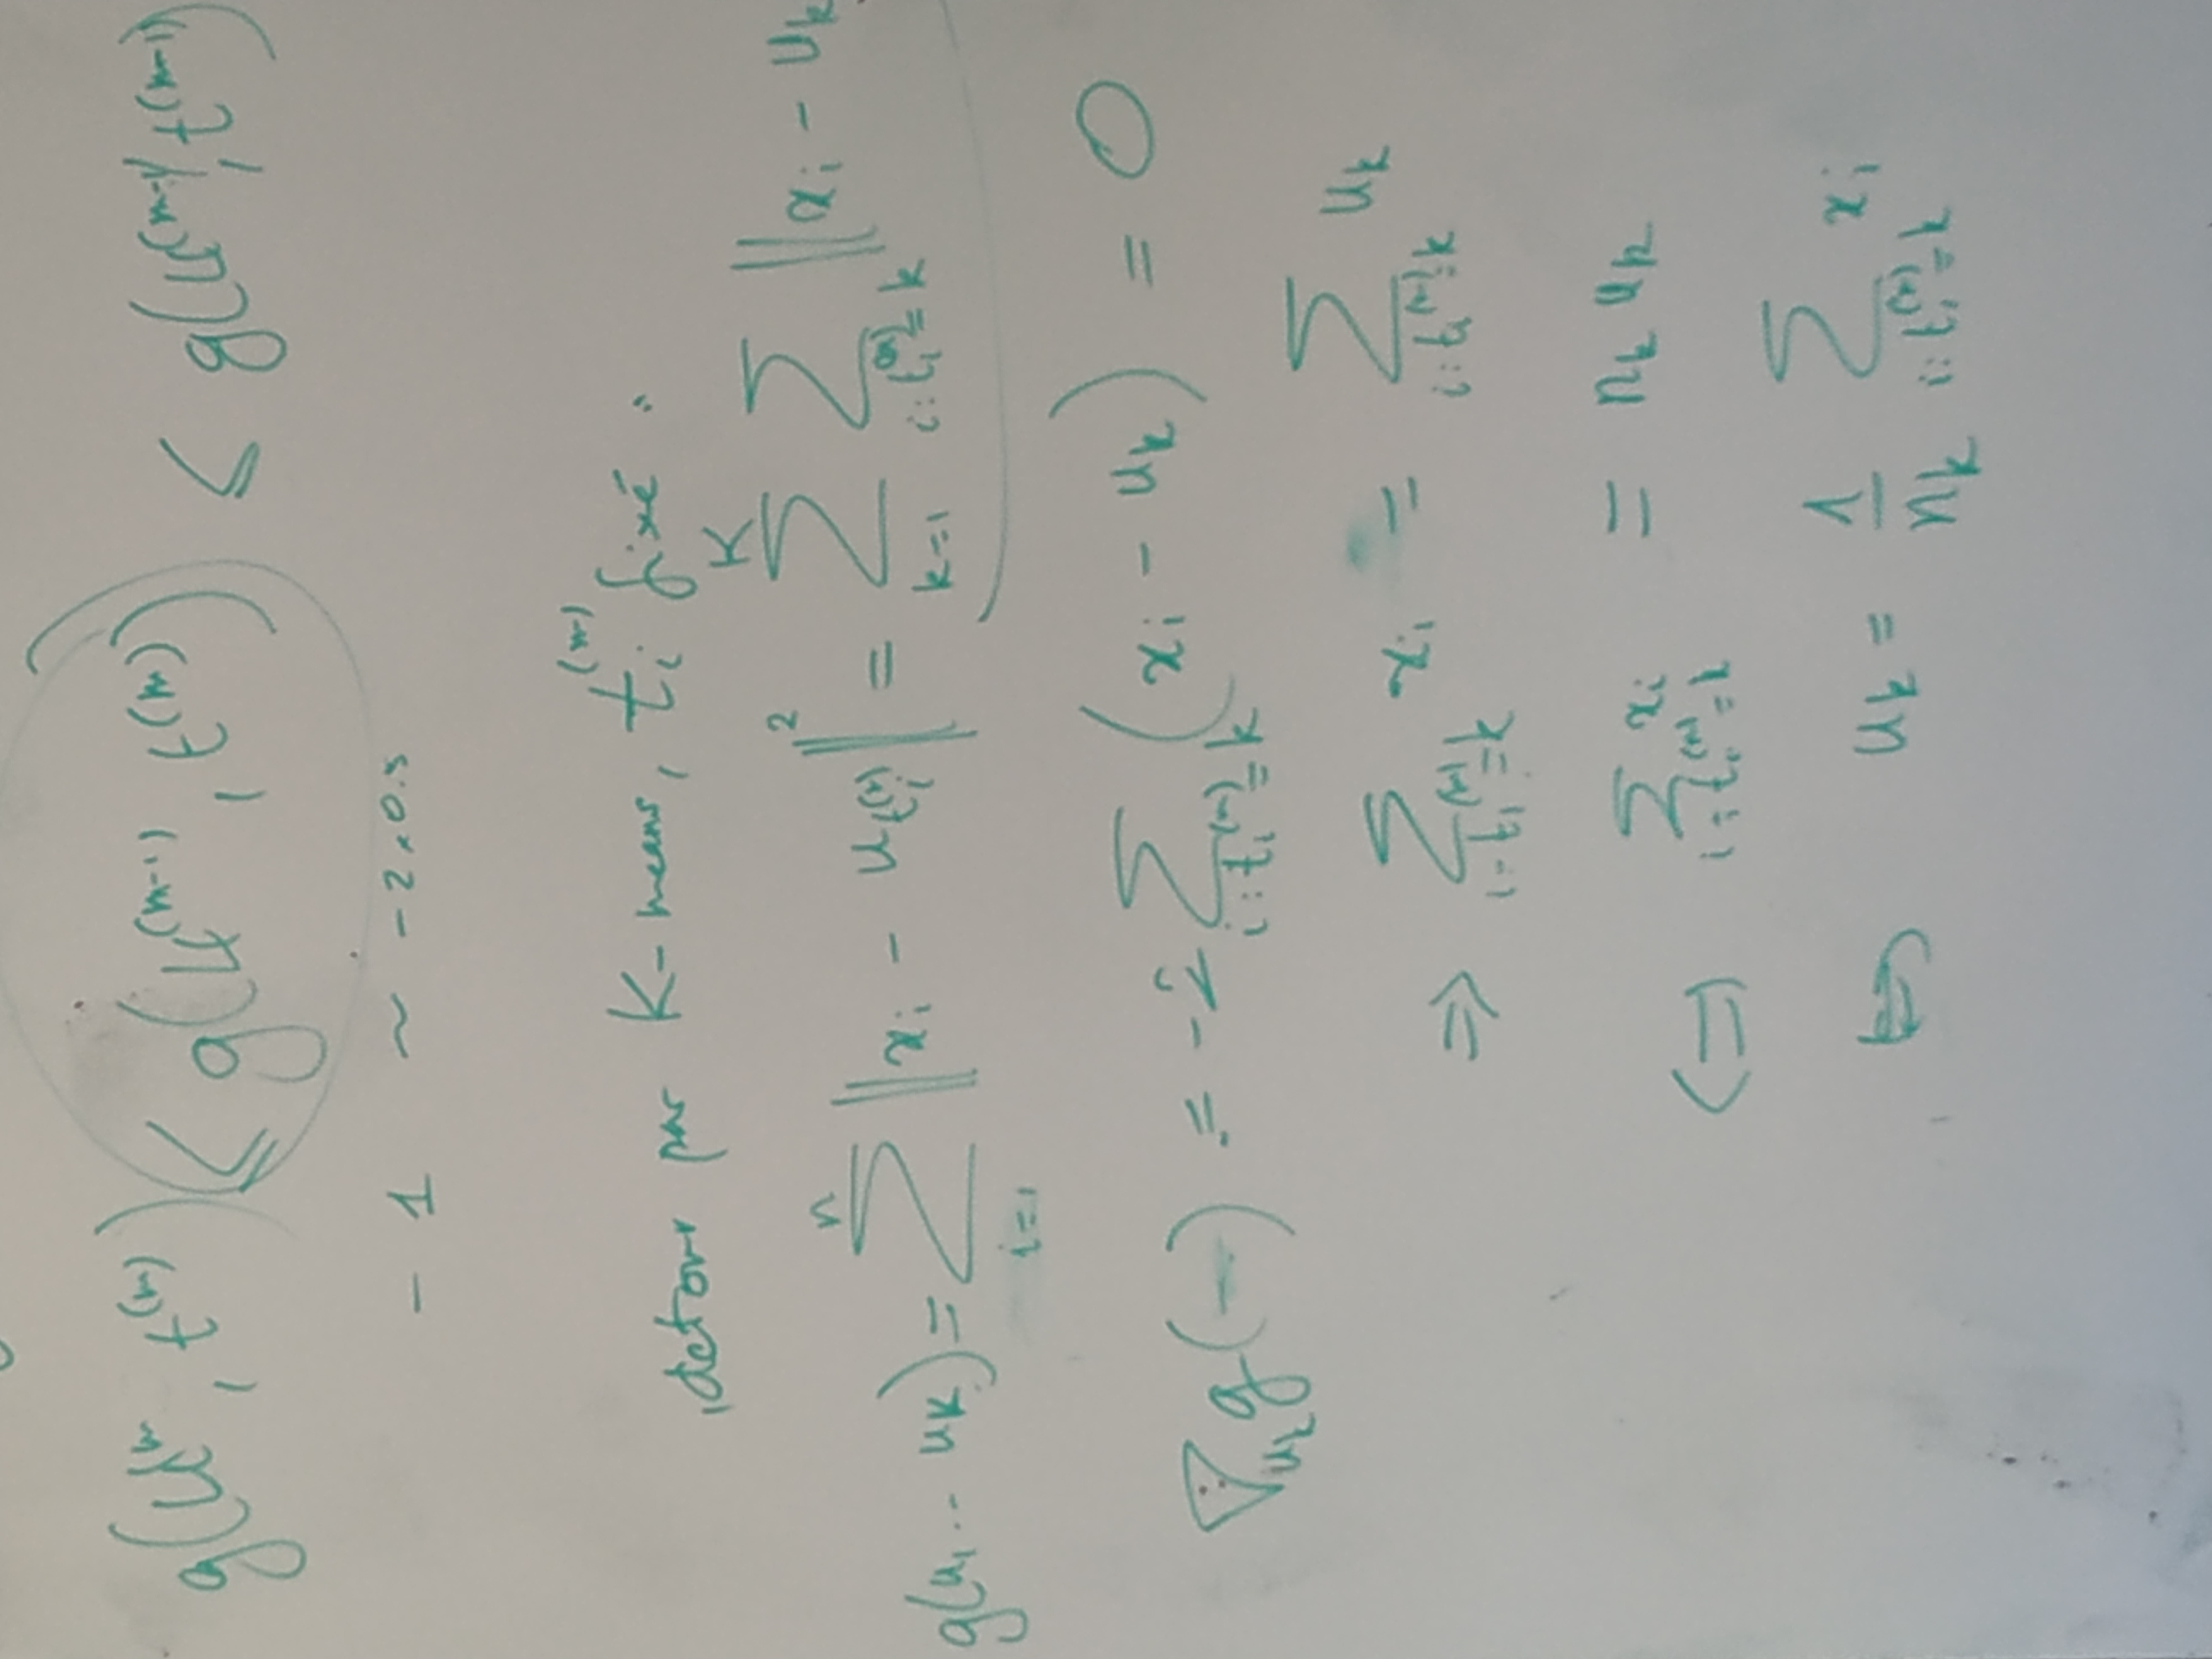 g(U^m, t^(m)) ≤ g(U^(m-1), t^(m)) ≤ g(U^(m-1), t^(m-1))
- 1 ~ -2×0.5
detour par K-means, t_i^(m) fixé :
g(u_1 .. u_K) = ∑_{i=1}^{n} ‖x_i - u_{t_i^(m)}‖^2 = ∑_{k=1}^{K} ∑_{i: t_i^(m) = k} ‖x_i - u_k
∇_{u_k} g(—) = -2 ∑_{i: t_i^(m) = k} (x_i - u_k) = 0
⇒ ∑_{i: t_i^(m) = k} x_i = ∑_{i: t_i^(m) = k} u_k
⟺ ∑_{i: t_i^(m) = k} x_i = n_k u_k
⟺ u_k = 1/n_k ∑_{i: t_i^(m) = k} x_i